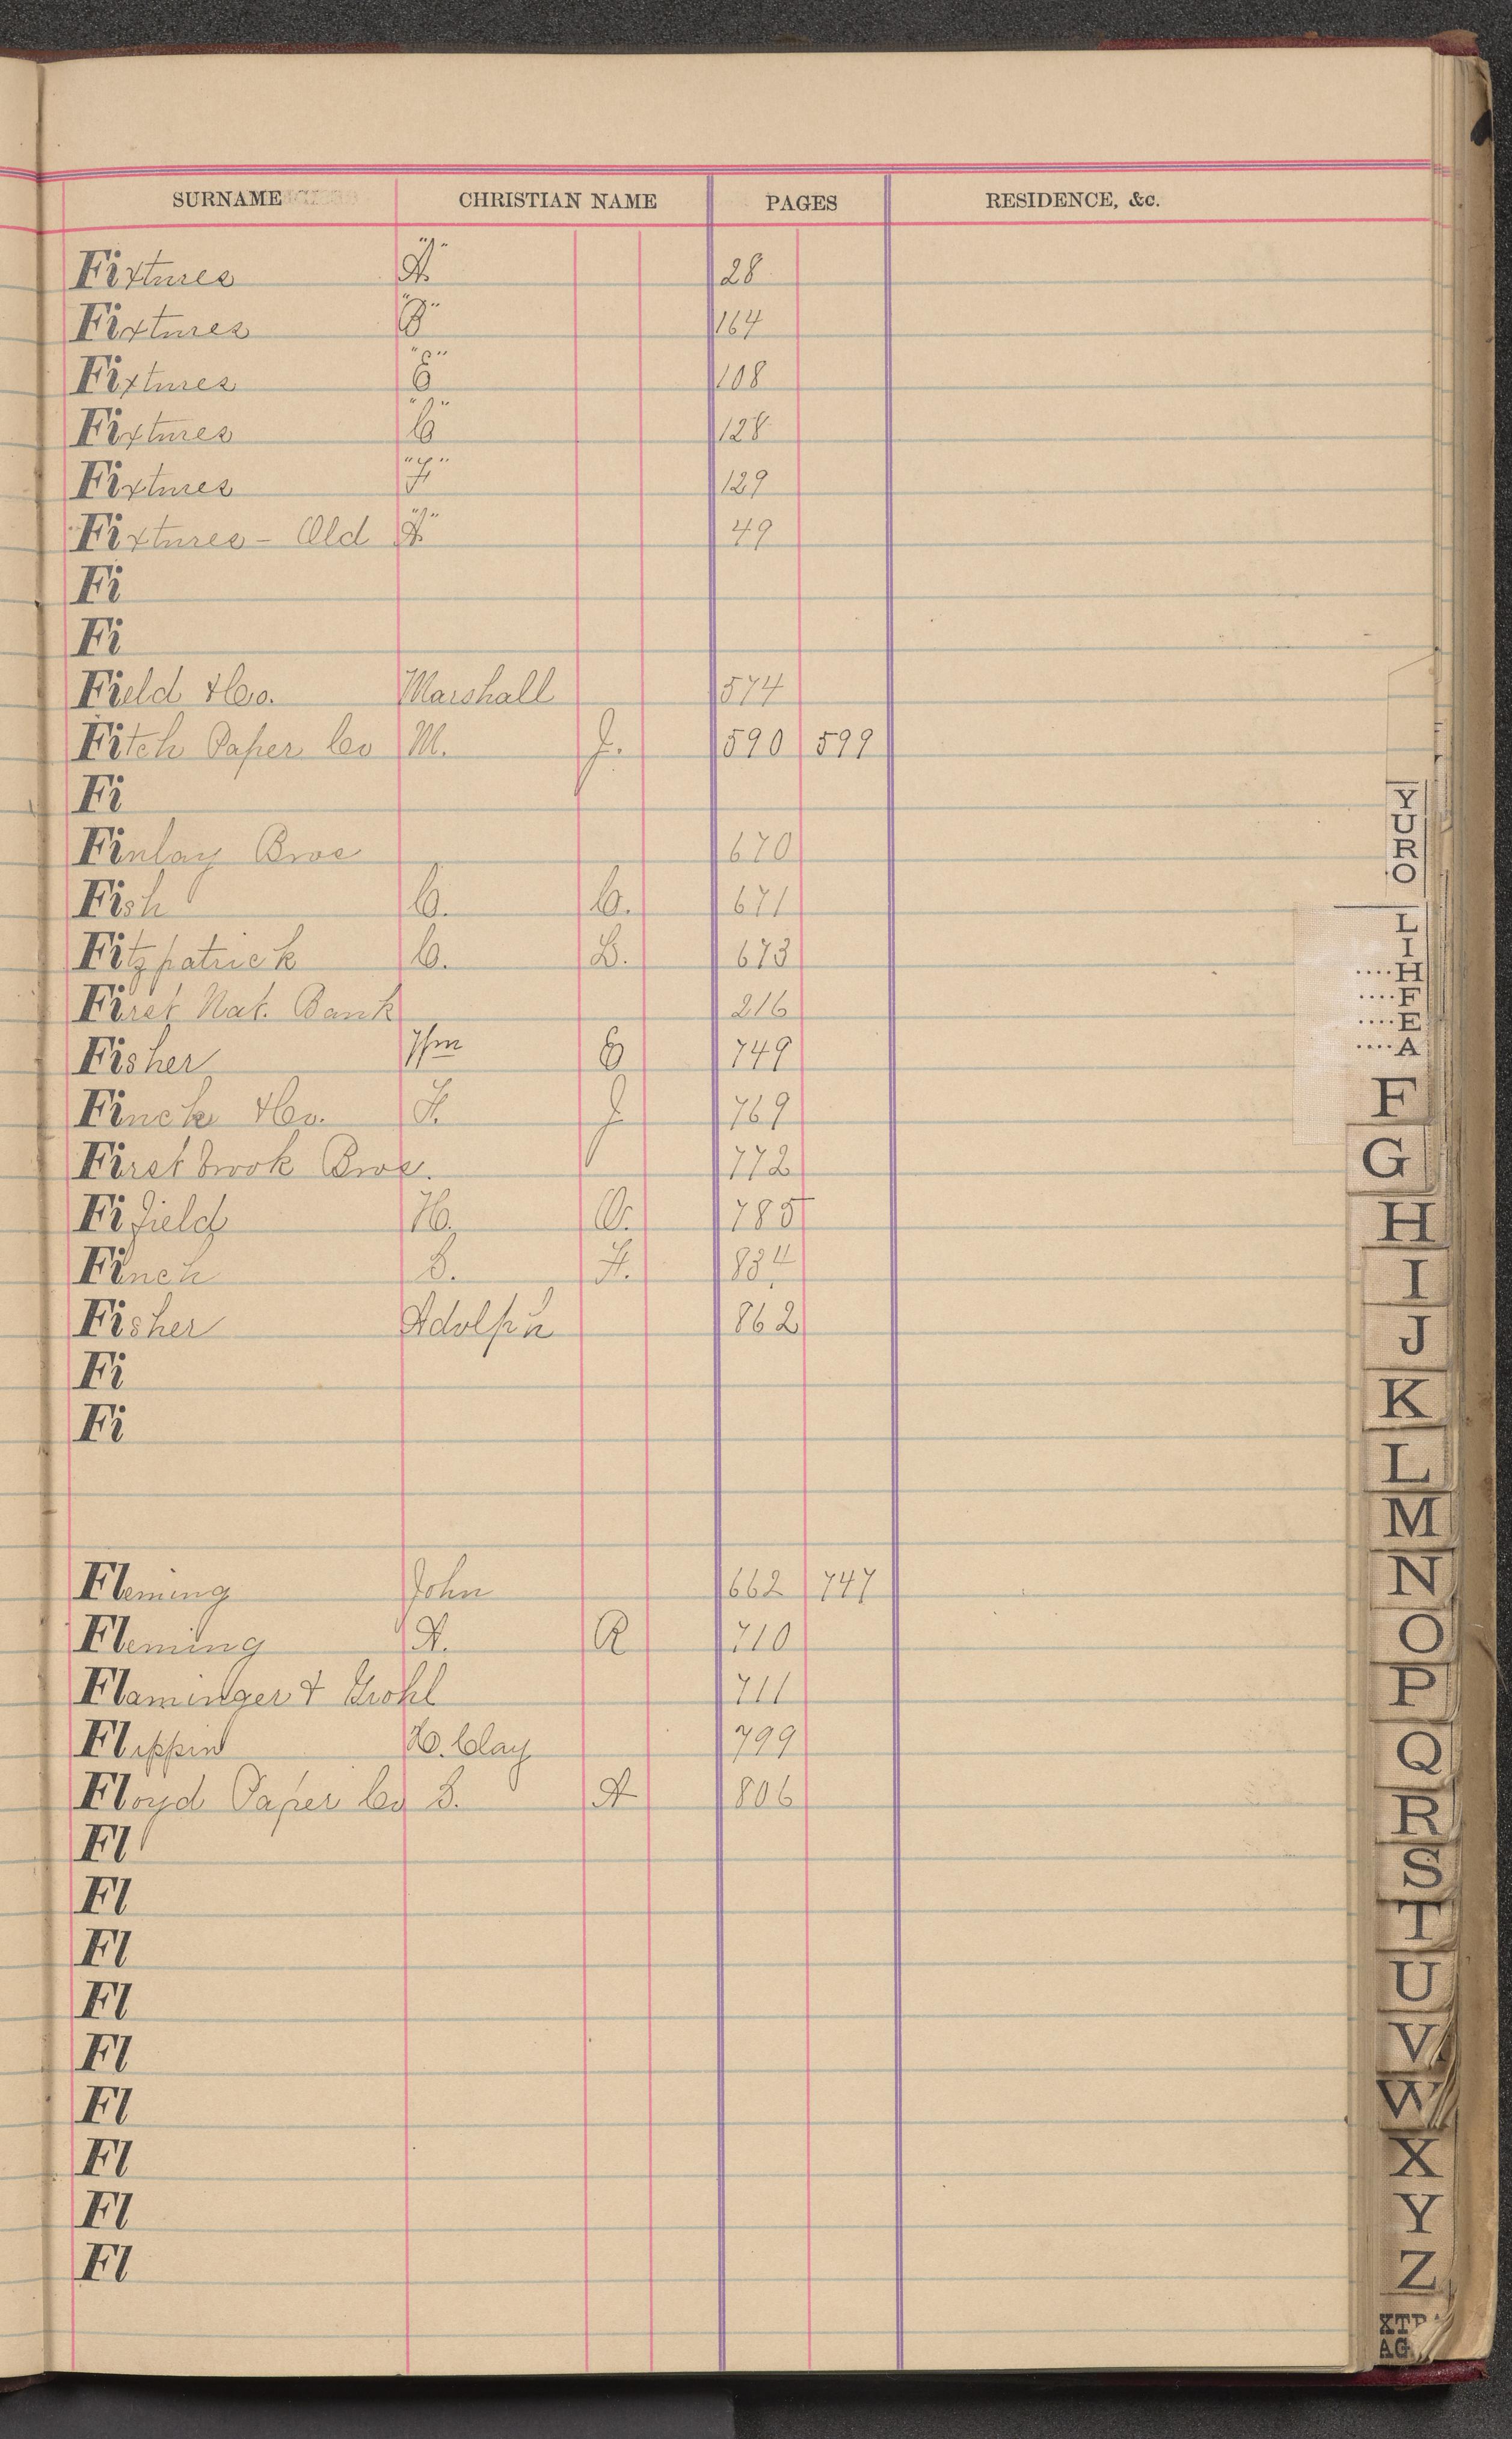 SURNAME CHRISTIAN NAME PAGES RESIDENCE, &c.
Fixtures "A" 28
Fixtures "B" 164
Fixtures "E" 108
Fixtures "C" 128
Fixtures "F" 129
Fixtures - Old "A" 49
Fi
Fi
Field & Co. Marshall 574
Fitch Paper Co M. J. 590 599
Fi
Finlay Bros 670
Fish C. C. 671
Fitzpatrick C. B. 673
First Nat. Bank 216
Fisher Wm E 749
Finch & Co. F. J 769
Firstbrook Bros. 772
Fifield H. O. 785
Finch S. F. 834
Fisher Adolph 862
Fi
Fi
Fleming John 662 747
Fleming A. R 710
Flaminger & Grohl 711
Flippin H. Clay 799
Floyd Paper Co S. A 806
Fl
Fl
Fl
Fl
Fl
Fl
Fl
Fl
Fl
Y
U
R
O
L
I
....H
....F
....E
....A
F
G
H
I
J
K
L
M
N
O
P
Q
R
S
T
U
V
W
X
Y
Z